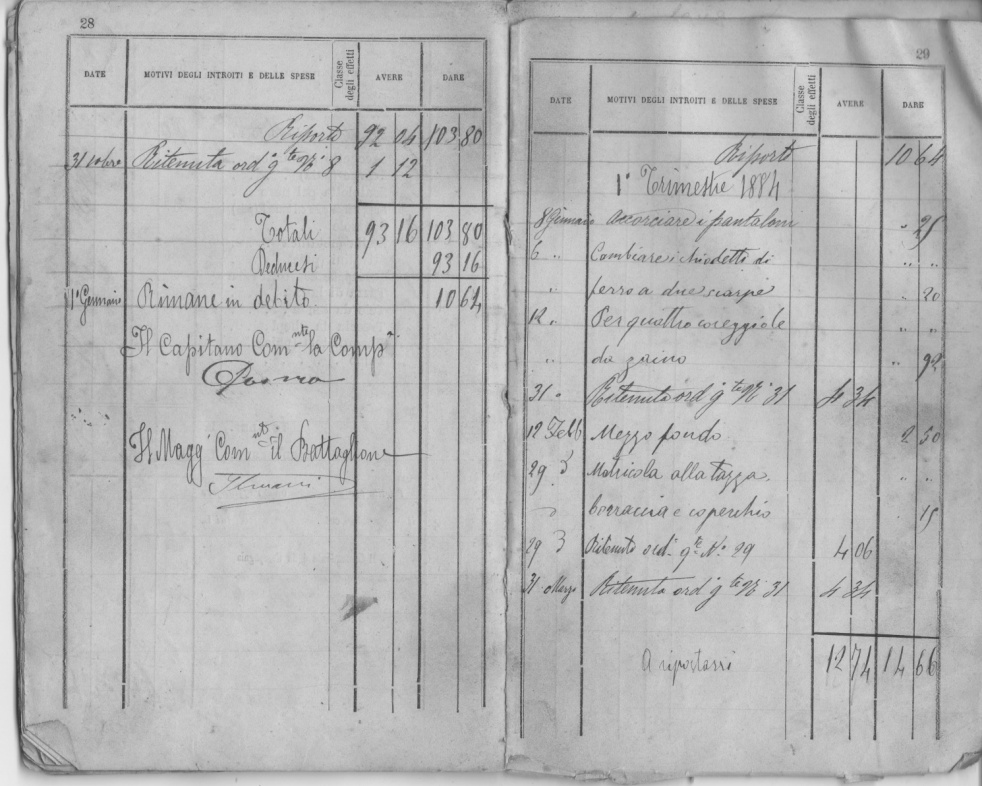 28
DATE MOTIVI DEGLI INTROITI E DELLE SPESE Classe degli effetti AVERE DARE
Riporto 92 04 103 80
31 Xobre Ritenuta ord gte No 8 1 12
Totali 93 16 103 80
Deducesi 93 16
1° Gennaio Rimane in debito 10 64
Il Capitano Comnte la Compa
Il Magg Comnt il Battaglione
29
DATE MOTIVI DEGLI INTROITI E DELLE SPESE Classe degli effetti AVERE DARE
Riporto 10 64
1° Trimestre 1884
8 Gennaio accorciare i pantaloni " 25
6 " Cambiare i chiodetti di " "
" ferro a due sciarpe " 20
12 " Per quattro coreggiole " "
" da zaino " 92
31 " Ritenuta ord gte No 31 4 34
12 Febb Mezzo fondo 2 50
29 " Matricola alla tazza " "
" borraccia e coperchio " 15
29 " Ritenuta ord. gte No 29 4 06
31 Marzo Ritenuta ord gte No 31 4 34
A riportarsi 12 74 14 66